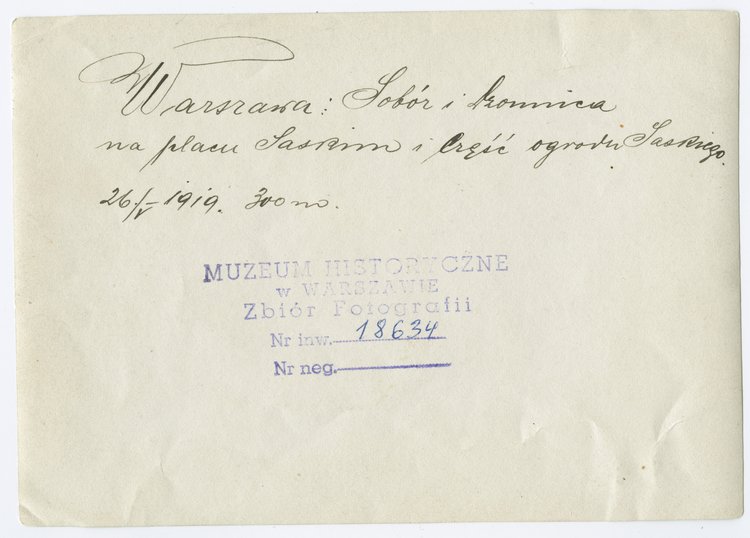 Warszawa: Sobór i dzwonnica
na placu Saskim i część ogrodu Saskiego.
26/V 1919. 300 m.
MUZEUM HISTORYCZNE
w WARSZAWIE
Zbiór Fotografii
Nr inw. 18634
Nr neg.